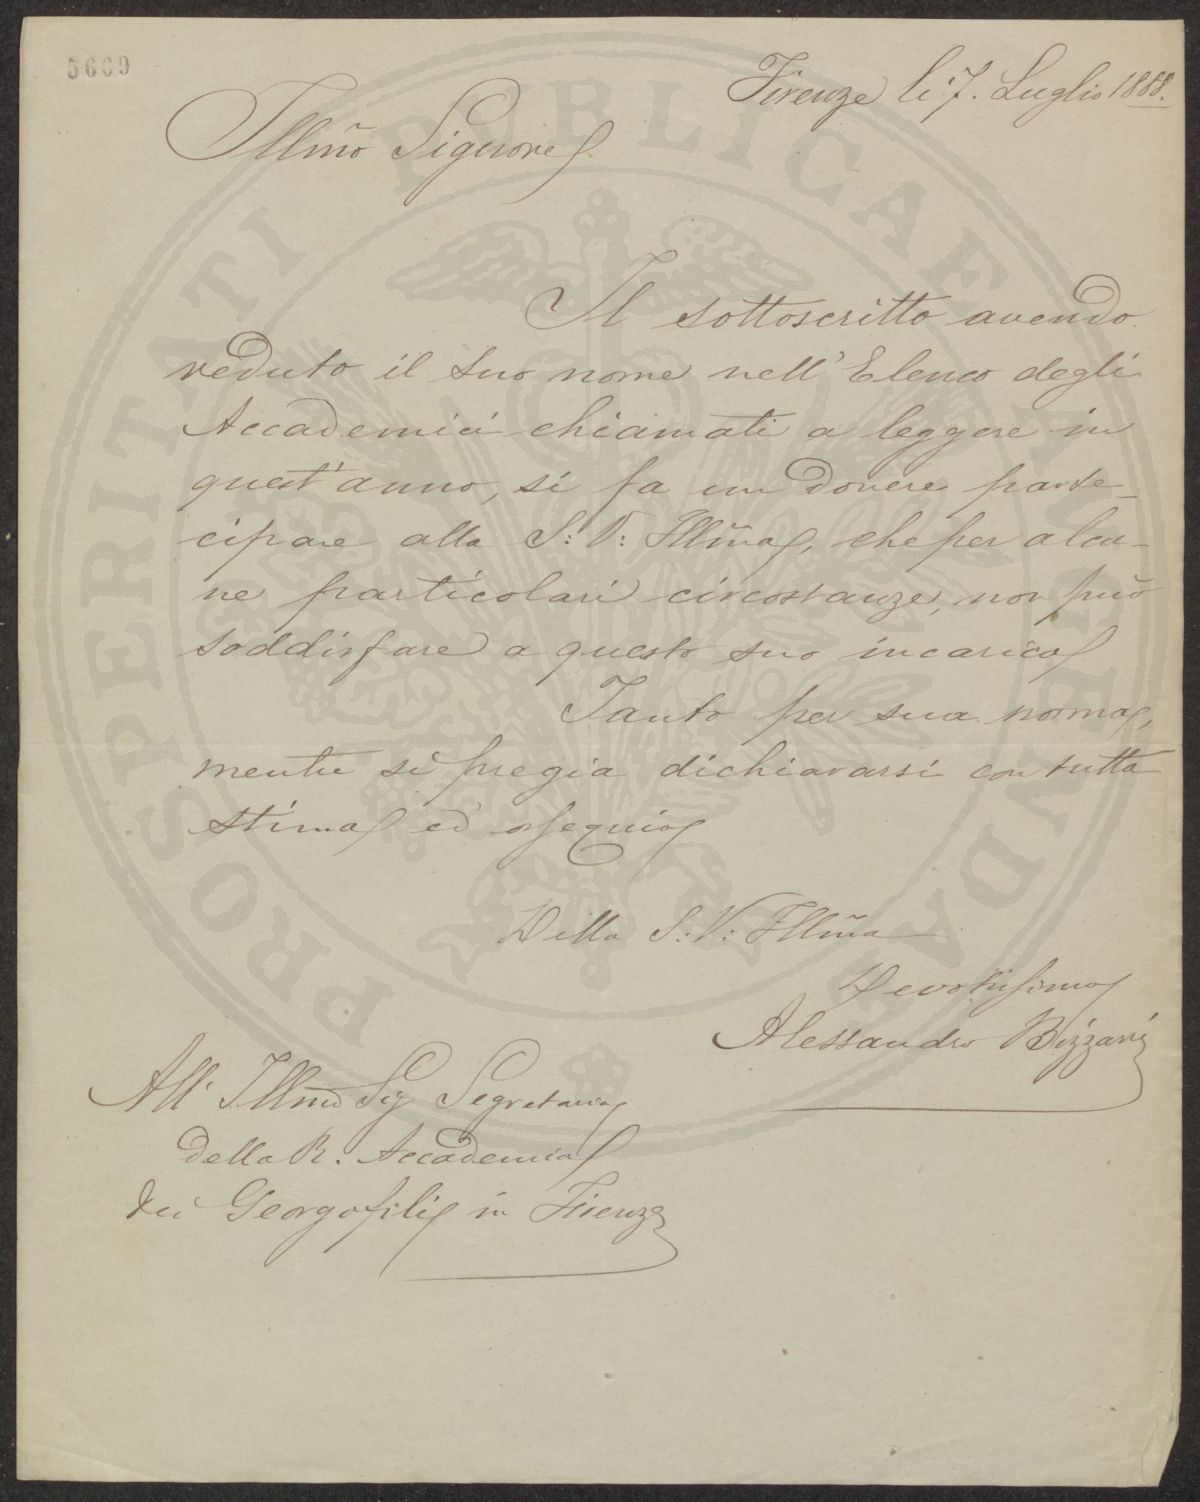 5669
Firenze li 7. Luglio 1868.
Illm̃o Signore
Il sottoscritto avendo
veduto il suo nome nell'Elenco degli
Accademici chiamati a leggere in
quest'anno, si fa un dovere parte-
cipare alla S: V: Illm̃a, che per alcu-
ne particolari circostanze, non può
soddisfare a questo suo incarico
Tanto per sua norma,
mentre si pregia dichiararsi con tutta
stima ed ossequio
Della S: V: Illm̃a
Devotissimo
Alessandro Bizzarri
All' Illmo Sig Segretario
della R. Accademia
dei Georgofili in Firenze
PROSPERITATI PUBLICAE AUGENDAE